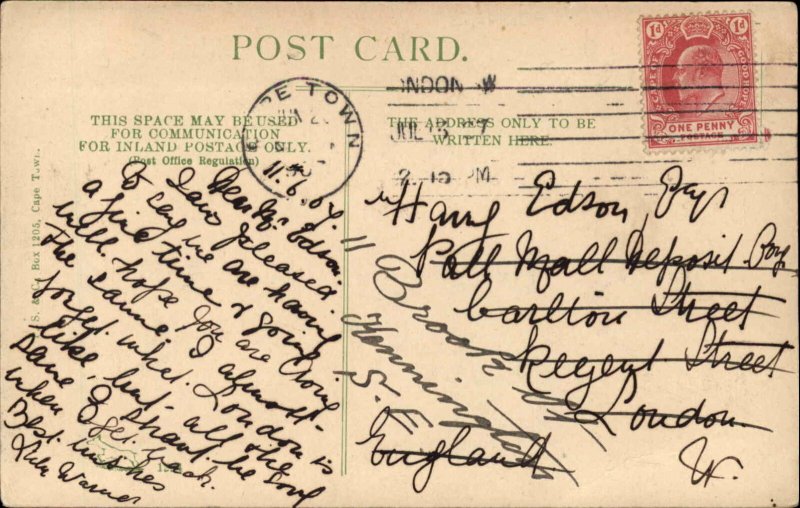 POST CARD.
THIS SPACE MAY BE USED
FOR COMMUNICATION
FOR INLAND POSTAGE ONLY.
(Post Office Regulation)
THE ADDRESS ONLY TO BE
WRITTEN HERE.
PE TOWN
NDON W
JUL 15 7
2 15 PM
1d 1d
ONE PENNY
POSTAGE
Box 1205, Cape Town.
11.6.07.
Dear Mr Edson.
I am pleased
to say we are having
a fine time & going
well hope you are doing
the same. I almost
forget what London is
like, but all the
same I shant be sorry
when I get back.
Best wishes
Warner
Harry Edson Esqr
Pall Mall Deposit
Carlton Street
Regent Street
London
W.
England
11 Brook St
Kennington
S.E.